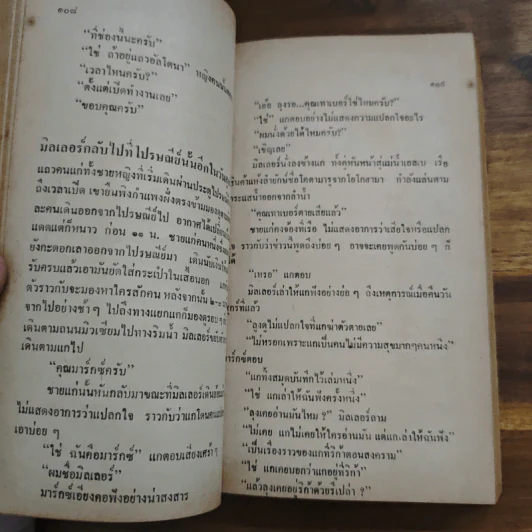 ๑๐๘
“ที่ช่องนี้นะครับ”
“ใช่ ถ้าอยู่แถวอัลโตนา” หญิงคนนั้น
“เวลาไหนครับ?”
“ตั้งแต่เปิดทำงานเลย”
“ขอบคุณครับ”
มิลเลอร์กลับไปที่ไปรษณีย์นั้นอีกในวัน
แถวคนแก่ทั้งชายหญิงที่เริ่มเดินผ่านประตูไปรษณีย์
ถึงเวลาเปิด เขายืนพิงกำแพงฝั่งตรงข้ามมองดู
ละคนเดินออกจากไปรษณีย์ไป อากาศใต้
แดดแต่ก็หนาว ก่อน ๑๑ น. ชายแก่คนหนึ่ง
ยังกะดอกเลาออกจากไปรษณีย์มา เดินนับเงิน
รับครบแล้วเอามันยัดใส่กระเป๋าในเสื้อนอก แก
ตัวราวกับจะมองหาใครสักคน หลังจากนั้น ๒-๓
จากไปอย่างช้า ๆ ไปถึงทางแยกแกก็มองรอบๆ
เดินตามถนนมิวเซียมไปทางริมน้ำ มิลเลอร์
เดินตามแกไป
“คุณมาร์กซ์ครับ”
ชายแก่นั้นหันกลับมาขณะที่มิลเลอร์เดิน
ไม่แสดงอาการว่าแปลกใจ ราวกับว่าแกโดนคน
เอาบ่อย ๆ
“ใช่ ฉันคือมาร์กซ์” แกตอบเสียงเศร้า ๆ
“ผมชื่อมิลเลอร์”
มาร์กซ์เอียงคอฟังอย่างน่าสงสาร
๑๐๙
“เอ้อ ลุงรอ...คุณเทาเบอร์ใช่ไหมครับ?”
“ใช่” แกตอบอย่างไม่แสดงความแปลกใจอะไร
“ผมนั่งด้วยได้ไหมครับ?”
“เชิญเลย”
มิลเลอร์นั่งลงข้างแก ทั้งคู่หันหน้าสู่แม่น้ำเอลเบ เรือ
สินค้าแห้งลำยักษ์ชื่อโคตามารุจากโยโกฮามา กำลังแล่นตาม
กระแสน้ำออกจากลำน้ำ
“คุณเทาเบอร์ตายเสียแล้ว”
ชายแก่คงจ้องที่เรือ ไม่แสดงอาการว่าเสียใจหรือแปลก
ราวกับว่าข่าวนี้ทุกสิ่งบ่อย ๆ อาจจะเคยพูดกันบ่อยๆ ก็
ได้
“เหรอ” แกตอบ
มิลเลอร์เล่าให้แกฟังอย่างย่อๆ ถึงเหตุการณ์เมื่อคืนวัน
ที่แล้ว
“ลุงดูไม่แปลกใจที่แกฆ่าตัวตายเลย”
“ไม่หรอกเพราะแกเป็นคนไม่มีความสุขมากๆคนหนึ่ง”
มาร์กซ์ตอบ
“แกทิ้งสมุดบันทึกไว้เล่มหนึ่ง”
“ใช่ แกเล่าให้ฉันฟังครั้งหนึ่ง”
“ลุงเคยอ่านมันไหม ?” มิลเลอร์ถาม
“ไม่เคย แกไม่เคยให้ใครอ่านมัน แต่แกเล่าให้ฉันฟัง”
“เป็นเรื่องราวของแกที่ริก้าตอนสงคราม”
“ใช่ แกเคยบอกว่าแกอยู่ที่ริก้า”
“แล้วลุงเคยอยู่ริก้าด้วยรึเปล่า ?”